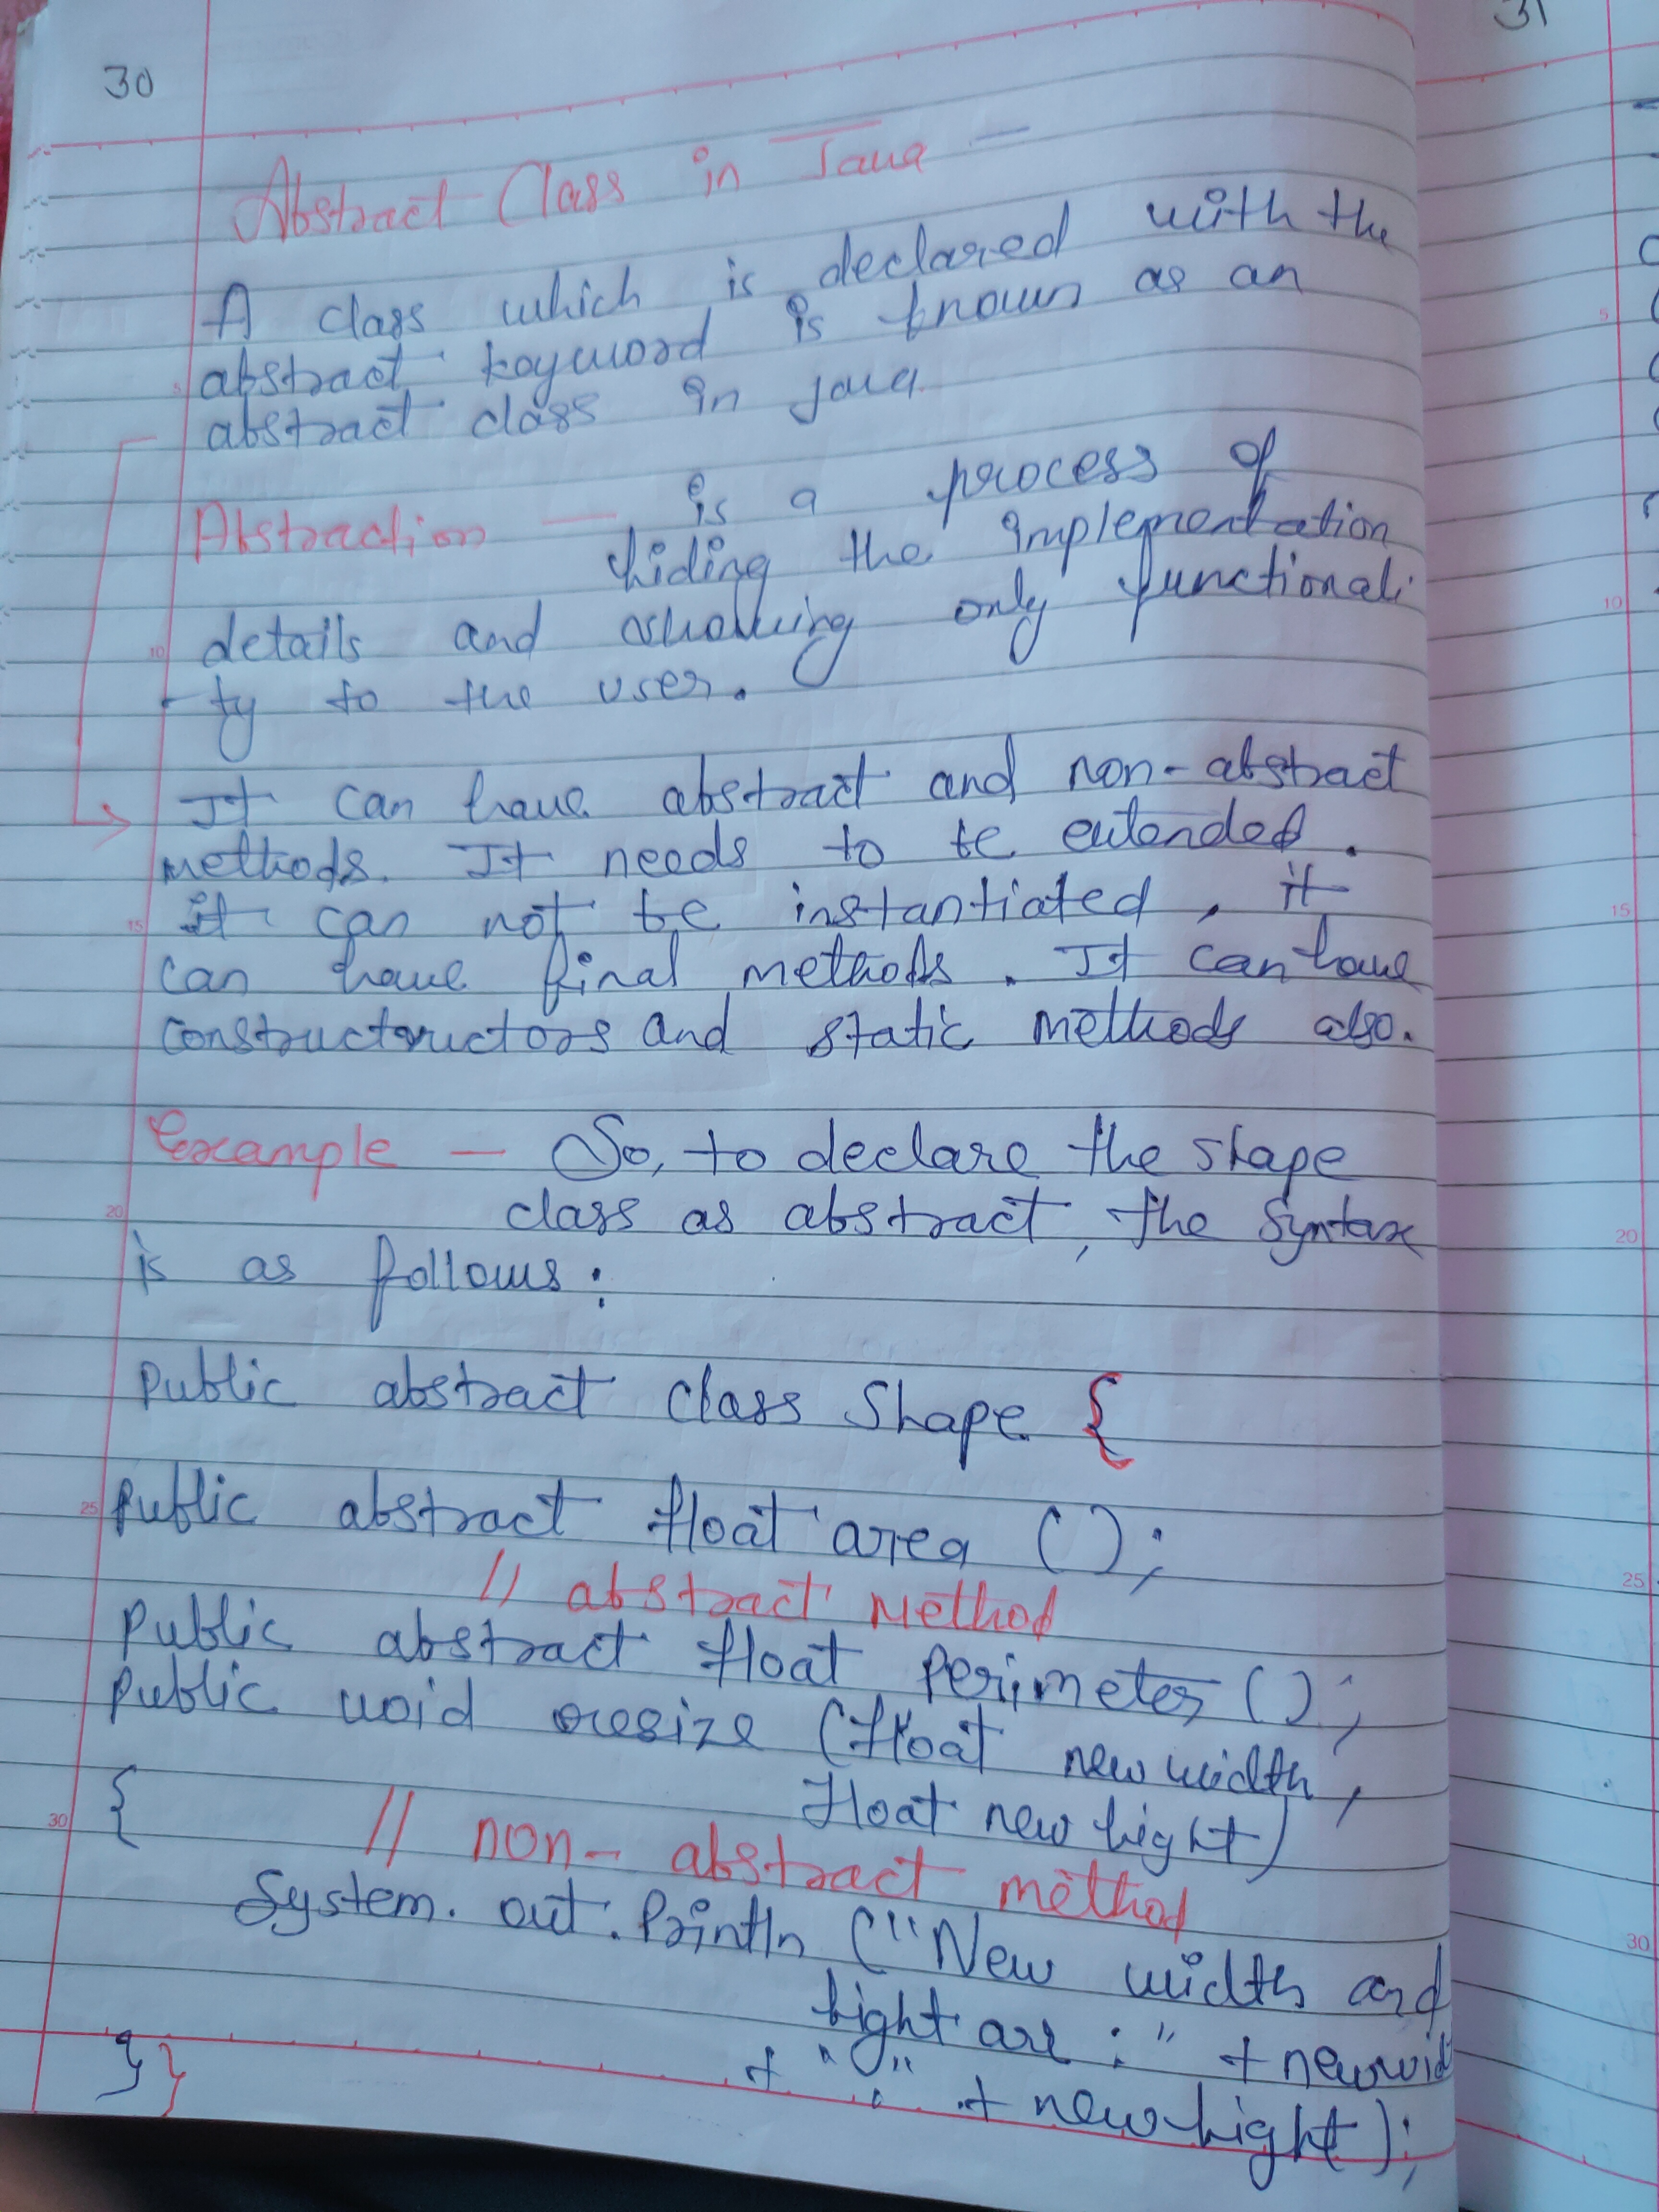 30
31
Abstract Class in Java —
A class which is declared with the
abstract keyword is known as an
abstract class in java
Abstraction — is a process of
hiding the implementation
details and showing only functionali
- ty to the user.
It can have abstract and non-abstract
methods. It needs to be extended.
it can not be instantiated, it
can have final methods. It can have
constructuructors and static methods also.
Example — So, to declare the shape
class as abstract, the syntax
is as follows:
Public abstract class Shape {
public abstract float area ();
// abstract method
Public abstract float perimeter ();
public void resize (float new width,
float new hight)
{ // non-abstract method
System. out. Println ("New width and
hight are : " + newwid
+ "," + newhight);
}}